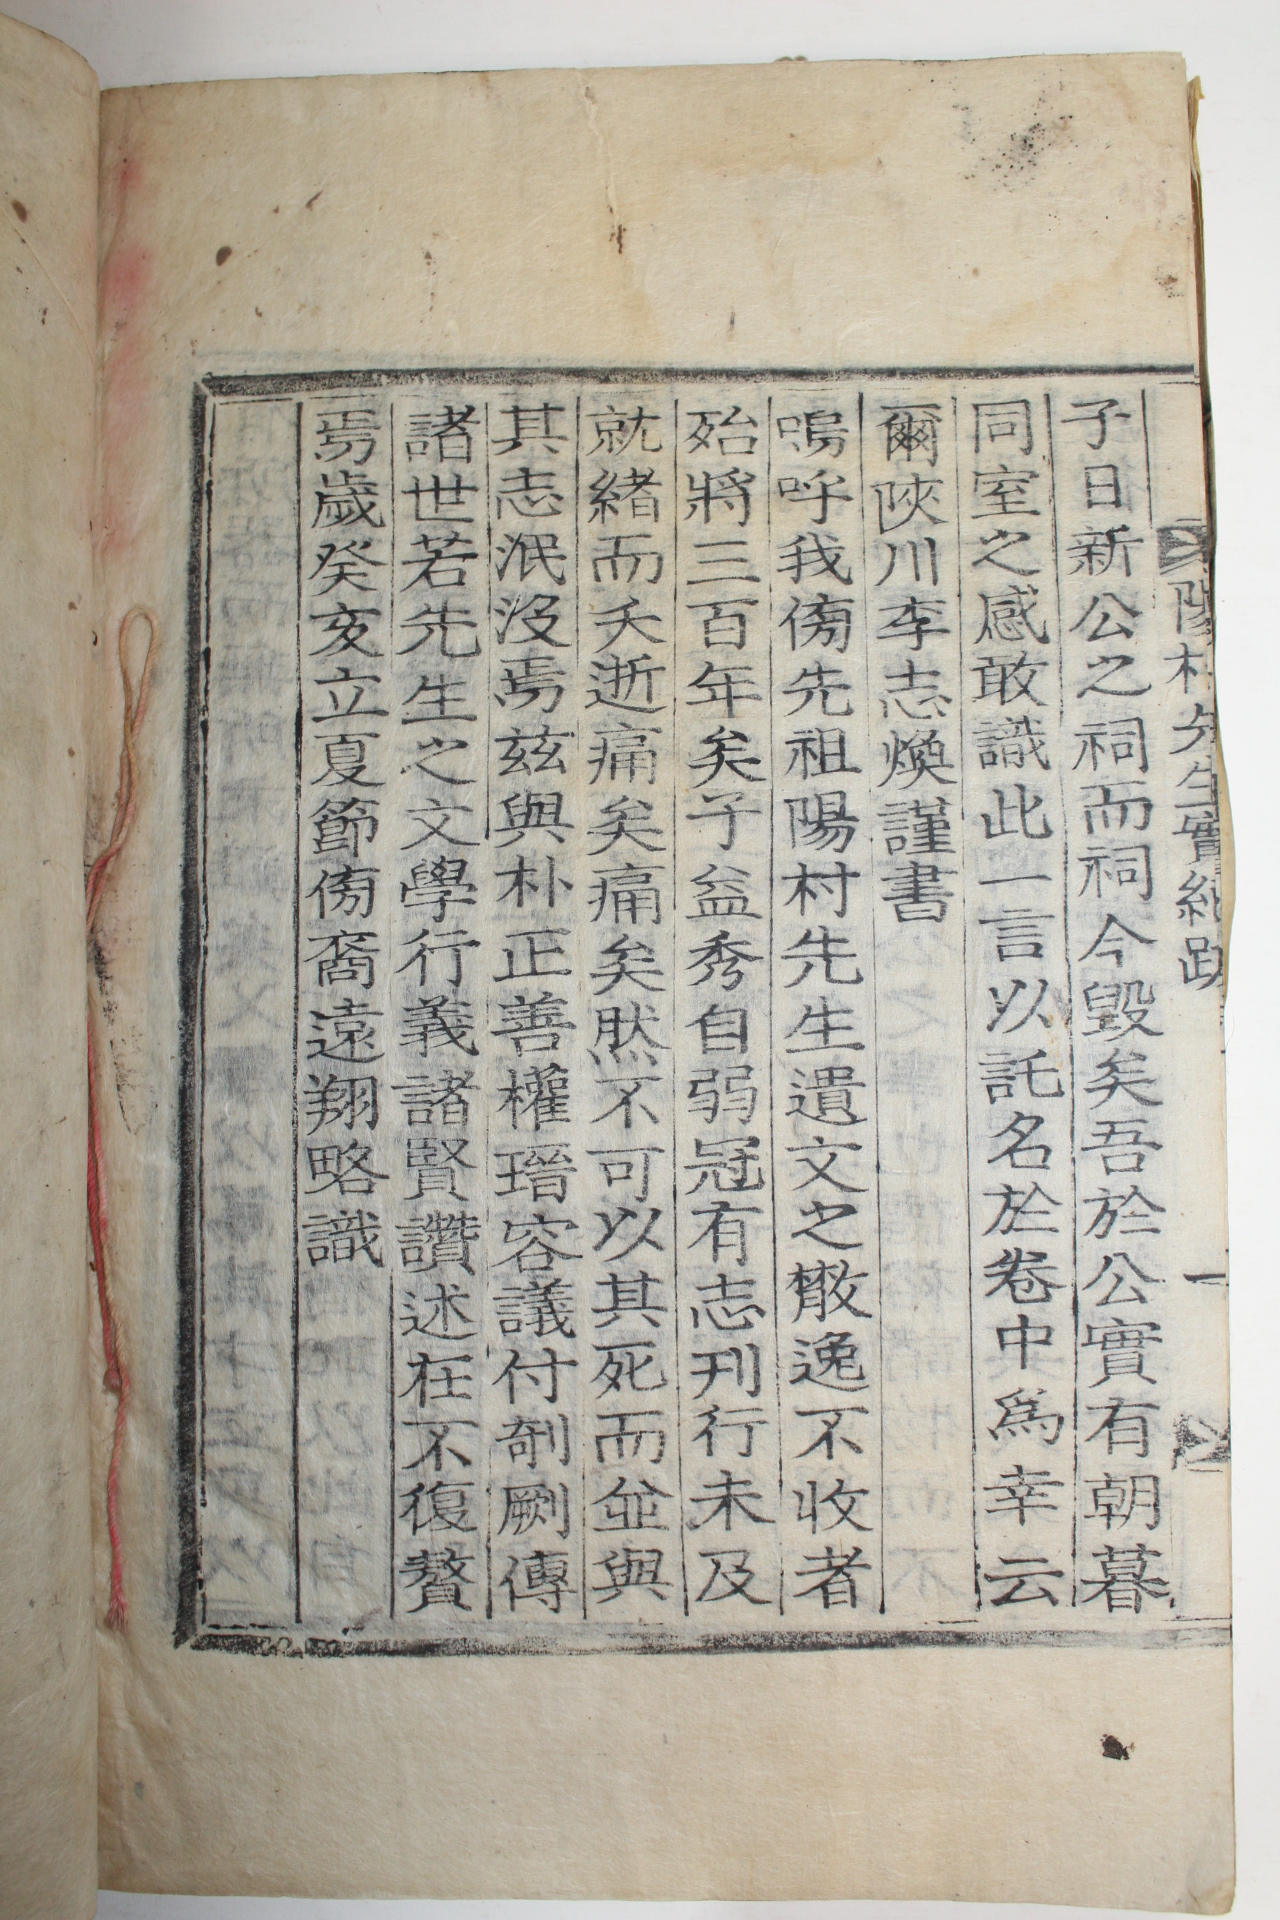 陽村先生實紀跋
一
子日新公之祠而祠今毁矣吾於公實有朝暮
同室之感敢識此一言以託名於卷中爲幸云
爾陜川李志煥謹書
嗚呼我傍先祖陽村先生遺文之散逸不收者
殆將三百年矣子益秀自弱冠有志刊行未及
就緒而夭逝痛矣痛矣然不可以其死而並與
其志泯沒焉玆與朴正善權瑨容議付剞劂傳
諸世若先生之文學行義諸賢讚述在不復贅
焉歲癸亥立夏節傍裔遠翔略識